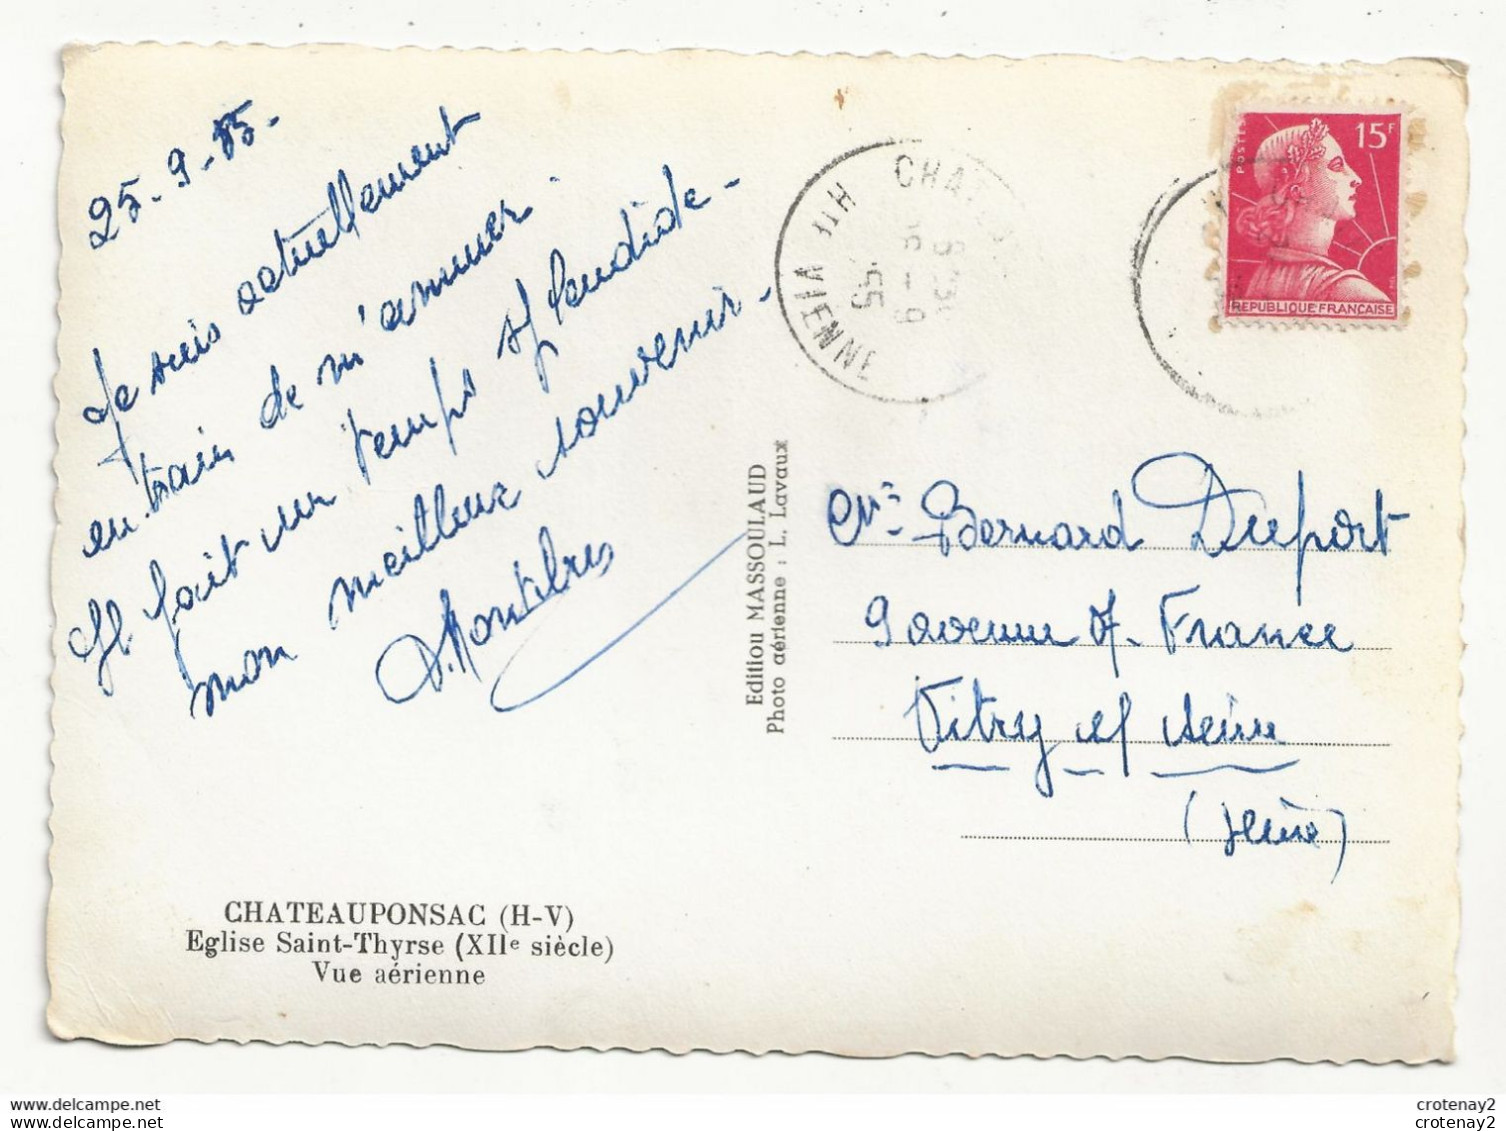 25-9-55-
Je suis actuellement
en train de m'amuser.
Il fait un temps splendide-
mon meilleur souvenir-
CHATEAUPONSAC (H-V)
Eglise Saint-Thyrse (XIIe siècle)
Vue aérienne
Edition MASSOULAUD
Photo aérienne : L. Lavaux
HTE VIENNE
55
POSTES
15F
REPUBLIQUE FRANÇAISE
Mr Bernard Duport
9 avenue A. France
Vitry s/ Seine
(Seine)
crotenay2
crotenay2
crotenay2
crotenay2